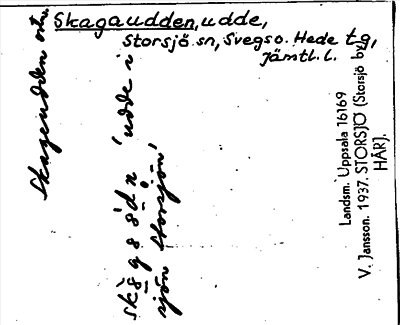 Skagaudden, udde,
Storsjö sn, Svegs o. Hede tg,
Jämtl. l.
Skagaudden
'udde i
sjön Storsjön'
Landsm. Uppsala 16169
V. Jansson. 1937. STORSJÖ (Storsjö by,
HÄRJ.